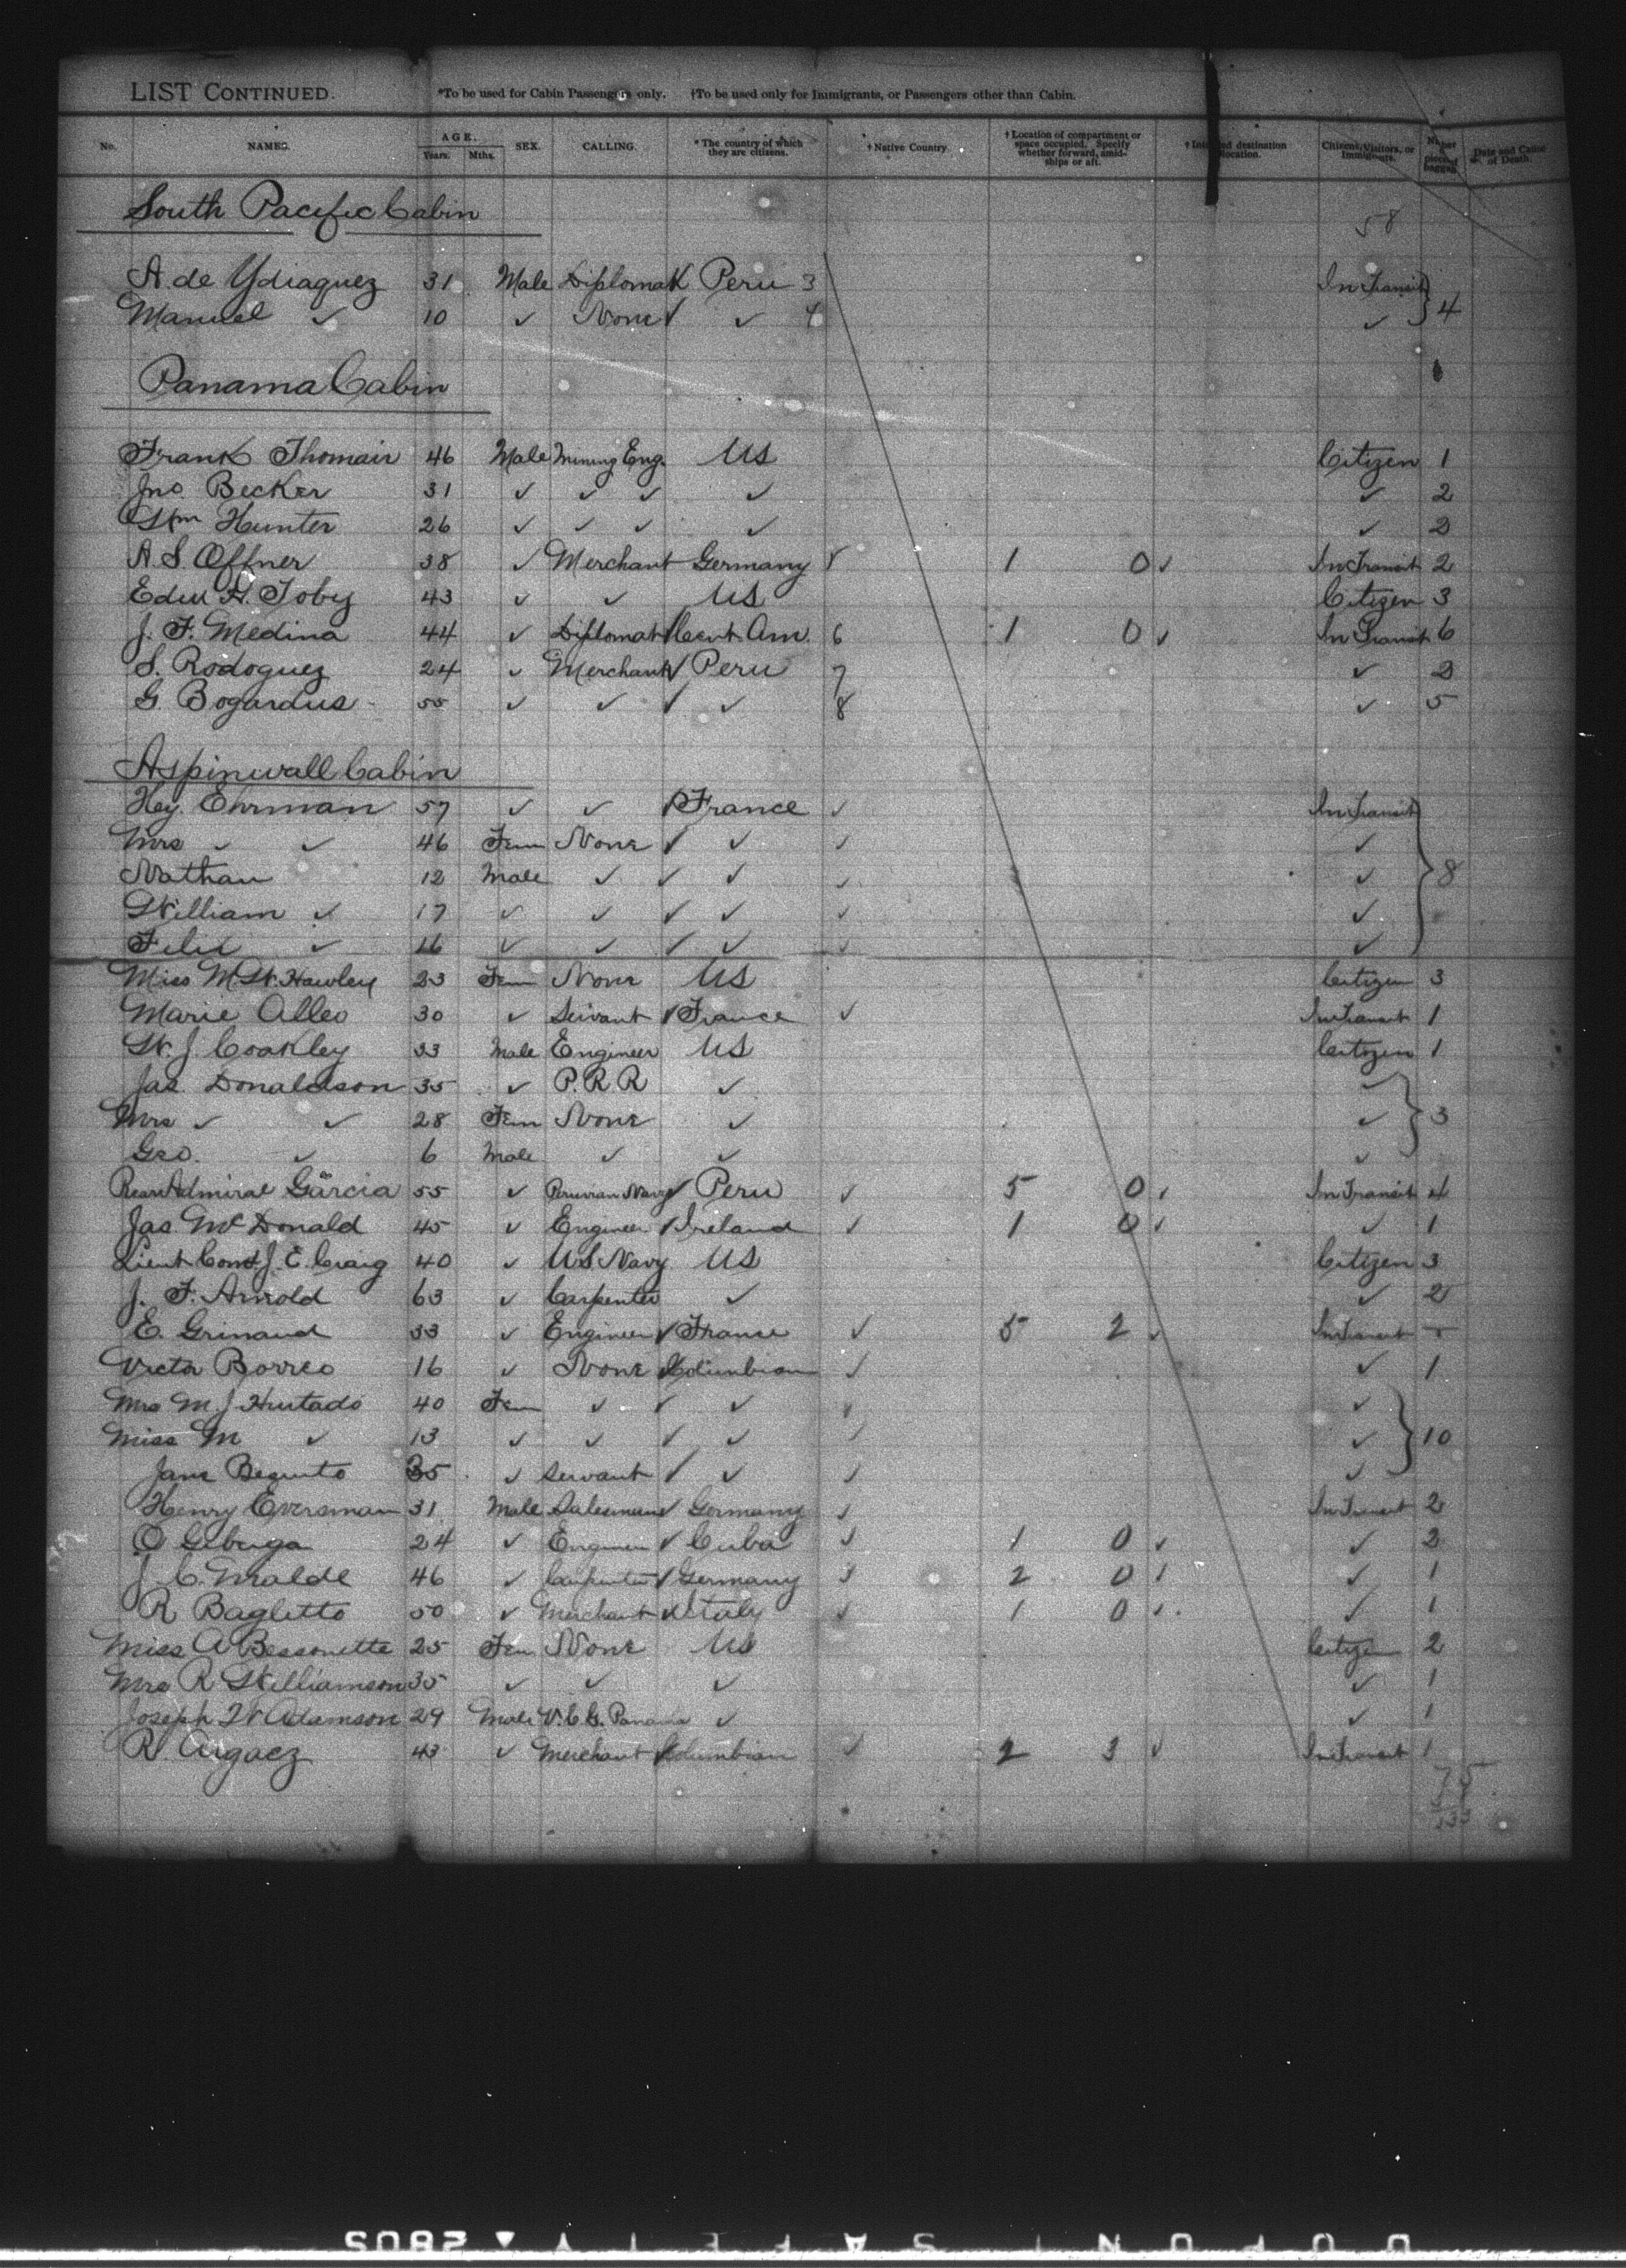 LIST CONTINUED. *To be used for Cabin Passengers only. †To be used only for Immigrants, or Passengers other than Cabin.
No. NAMES. AGE. Years. Mths. SEX. CALLING. *The country of which they are citizens. †Native Country †Location of compartment or space occupied. Specify whether forward, amidships or aft. destination location. Citizens, Visitors, or Immigrants. pieces of baggage Date and Cause of Death.
South Pacific Cabin 58
A. de Ydiaquez 31 Male Diplomat Peru 3 In Transit } 4
Manuel ✓ 10 ✓ None ✓ ✓ 4 ✓
Panama Cabin
Frank Thomain 46 Male Mining Eng. US Citizen 1
Jno. Becker 31 ✓ ✓ ✓ ✓ ✓ 2
Wm Hunter 26 ✓ ✓ ✓ ✓ ✓ 2
A. S. Offner 38 ✓ Merchant Germany 1 0 ✓ In Transit 2
Edw H. Toby 43 ✓ ✓ US Citizen 3
J. F. Medina 44 ✓ Diplomat Cent Am. 6 1 0 ✓ In Transit 6
S. Rodoguez 24 ✓ Merchant ✓ Peru 7 ✓ 2
G. Bogardus 55 ✓ ✓ ✓ ✓ 8 ✓ 5
Aspinwall Cabin
Hey. Ehrman 57 ✓ ✓ ✓ France ✓ In Transit
Mrs ✓ ✓ 46 Fem None ✓ ✓ ✓ ✓
Nathan 12 Male ✓ ✓ ✓ ✓ ✓ } 8
William ✓ 17 ✓ ✓ ✓ ✓ ✓ ✓
Felix ✓ 16 ✓ ✓ ✓ ✓ ✓ ✓
Miss M. W. Hawley 23 Fem None US Citizen 3
Marie Alleo 30 ✓ Servant ✓ France ✓ In Transit 1
W. J. Coakley 33 Male Engineer US Citizen 1
Jas. Donaldson 35 ✓ P. R. R ✓ ✓
Mrs ✓ ✓ 28 Fem None ✓ ✓ } 3
Geo. ✓ 6 Male ✓ ✓ ✓
Rear Admiral Garcia 55 ✓ Peruvian Navy ✓ Peru ✓ 5 0 ✓ In Transit 4
Jas. McDonald 45 ✓ Engineer ✓ Ireland ✓ 1 0 ✓ ✓ 1
Lieut Comd J. E. Craig 40 ✓ US Navy US Citizen 3
J. F. Arnold 63 ✓ Carpenter ✓ ✓ 2
E. Grinaud 33 ✓ Engineer ✓ France ✓ 5 2 ✓ In Transit
Victor Borreo 16 ✓ None Columbian ✓ ✓ 1
Mrs M. J. Hurtado 40 Fem ✓ ✓ ✓ ✓ ✓
Miss M ✓ 13 ✓ ✓ ✓ ✓ ✓ ✓ } 10
Jane Bequito 35 ✓ Servant ✓ ✓ ✓ ✓
Henry Eversman 31 Male Salesman ✓ Germany ✓ In Transit 2
O Giberga 24 ✓ Engineer ✓ Cuba ✓ 1 0 ✓ ✓ 2
J. C. Walde 46 ✓ Carpenter ✓ Germany ✓ 2 0 ✓ ✓ 1
R Bagletto 50 ✓ Merchant ✓ Italy ✓ 1 0 ✓ ✓ 1
Miss A Bessonette 25 Fem None US Citizen 2
Mrs R Williamson 35 ✓ ✓ ✓ ✓ 1
Joseph W Adamson 29 Male V. C. G. Panama ✓ ✓ 1
R Argaez 43 ✓ Merchant Columbian ✓ 2 3 ✓ In Transit 1
75
133